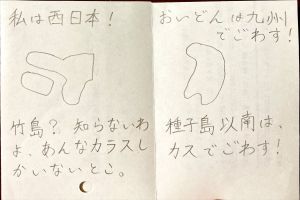 私は西日本!
竹島? 知らないわ
よ、あんなカラスし
かいないとこ。
おいどんは九州
でごわす!
種子島以南は、
カスでごわす!